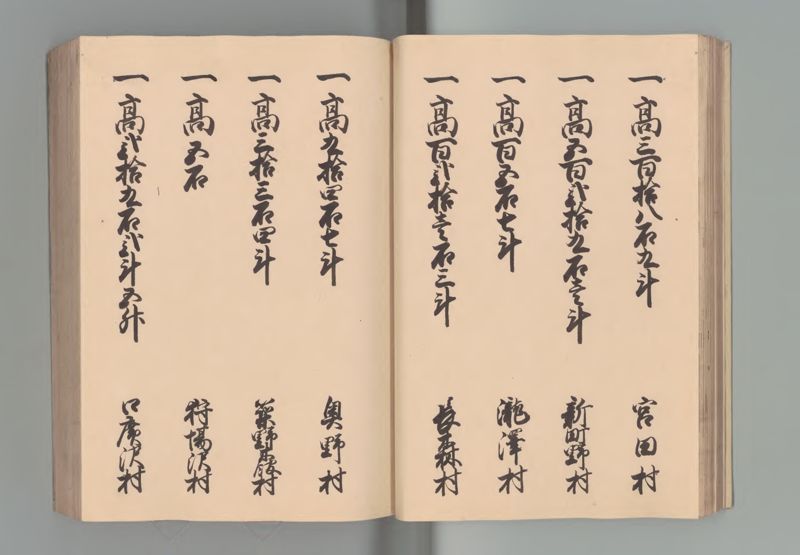 一高三百拾八石九斗 宮田村
一高五百弐拾九石壱斗 新町野村
一高百五石七斗 瀧澤村
一高百弐拾壱石三斗 長森村
一高九拾四石七斗 奥野村
一高三拾三石四斗 築野森村
一高五石 狩場沢村
一高弐拾九石弐斗五升 口廣沢村